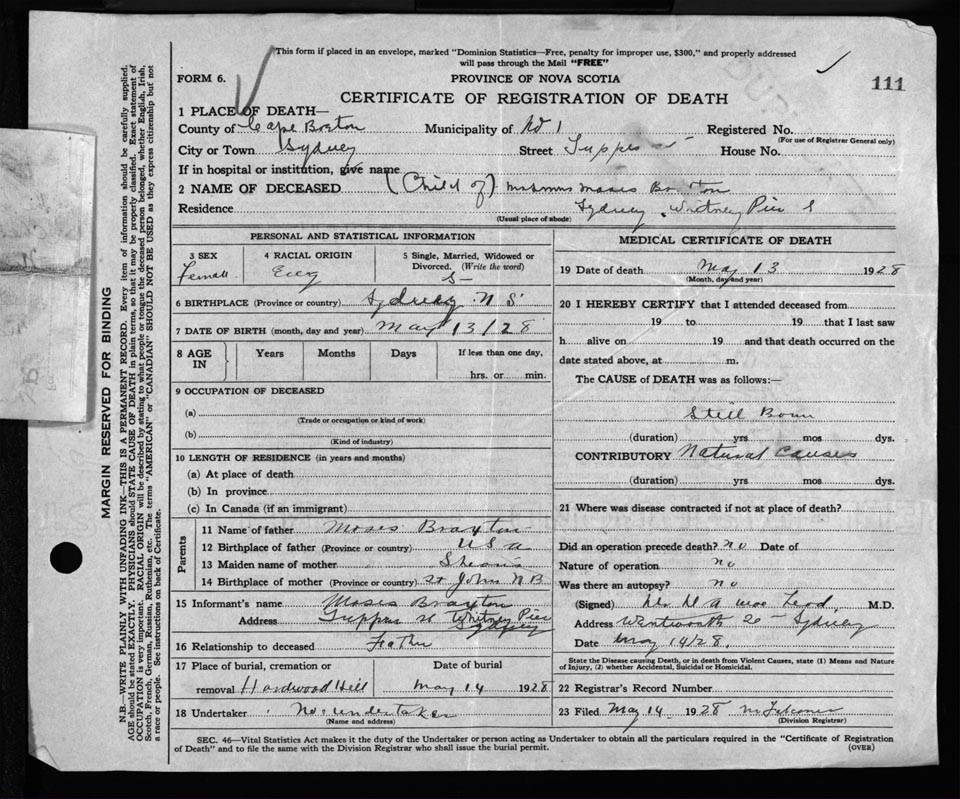 This form if placed in an envelope, marked "Dominion Statistics—Free, penalty for improper use, $300," and properly addressed
will pass through the Mail "FREE"
FORM 6.
PROVINCE OF NOVA SCOTIA
111
CERTIFICATE OF REGISTRATION OF DEATH
1 PLACE OF DEATH—
County of Cape Breton Municipality of No 1 Registered No.
(For use of Registrar General only)
City or Town Sydney Street Tupper House No.
If in hospital or institution, give name
2 NAME OF DECEASED (Child of) Moses
Residence Sydney Whitney Pier
(Usual place of abode)
PERSONAL AND STATISTICAL INFORMATION
3 SEX 4 RACIAL ORIGIN 5 Single, Married, Widowed or
Divorced. (Write the word)
Female S
6 BIRTHPLACE (Province or country) Sydney N S
7 DATE OF BIRTH (month, day and year) May 13/28
8 AGE IN Years Months Days If less than one day,
hrs. or min.
9 OCCUPATION OF DECEASED
(a)
(Trade or occupation or kind of work)
(b)
(Kind of industry)
10 LENGTH OF RESIDENCE (in years and months)
(a) At place of death
(b) In province
(c) In Canada (if an immigrant)
Parents
11 Name of father Moses Braxton
12 Birthplace of father (Province or country) U S A
13 Maiden name of mother
14 Birthplace of mother (Province or country) St John N B
15 Informant's name Moses Braxton
Address Tupper St Whitney Pier
Sydney
16 Relationship to deceased Father
17 Place of burial, cremation or Date of burial
removal Hardwood Hill May 14 1928
18 Undertaker No undertaker
(Name and address)
MEDICAL CERTIFICATE OF DEATH
19 Date of death May 13 1928
(Month, day and year)
20 I HEREBY CERTIFY that I attended deceased from
19 to 19 that I last saw
h alive on 19 and that death occurred on the
date stated above, at m.
The CAUSE of DEATH was as follows:—
Still Born
(duration) yrs mos dys.
CONTRIBUTORY Natural Causes
(duration) yrs mos dys.
21 Where was disease contracted if not at place of death?
Did an operation precede death? no Date of
Nature of operation no
Was there an autopsy? no
(Signed) Dr A Leod, M.D.
Address Wentworth Sydney
Date May 14/28.
State the Disease causing Death, or in death from Violent Causes, state (1) Means and Nature
of Injury, (2) whether Accidental, Suicidal or Homicidal.
22 Registrar's Record Number
23 Filed May 14 1928
(Division Registrar)
SEC. 46—Vital Statistics Act makes it the duty of the Undertaker or person acting as Undertaker to obtain all the particulars required in the "Certificate of Registration
of Death" and to file the same with the Division Registrar who shall issue the burial permit.
(OVER)
MARGIN RESERVED FOR BINDING
N.B.—WRITE PLAINLY WITH UNFADING INK—THIS IS A PERMANENT RECORD. Every item of information should be carefully supplied.
AGE should be stated EXACTLY. PHYSICIANS should STATE CAUSE OF DEATH in plain terms, so that it may be properly classified. Exact statement of
OCCUPATION is very important. RACIAL ORIGIN will be described by stating to what people or tongue the deceased person belonged, whether English, Irish,
Scotch, French, German, Russian, Ruthenian, etc. The terms "AMERICAN" or "CANADIAN" SHOULD NOT BE USED as they express citizenship but not
a race or people. See instructions on back of Certificate.